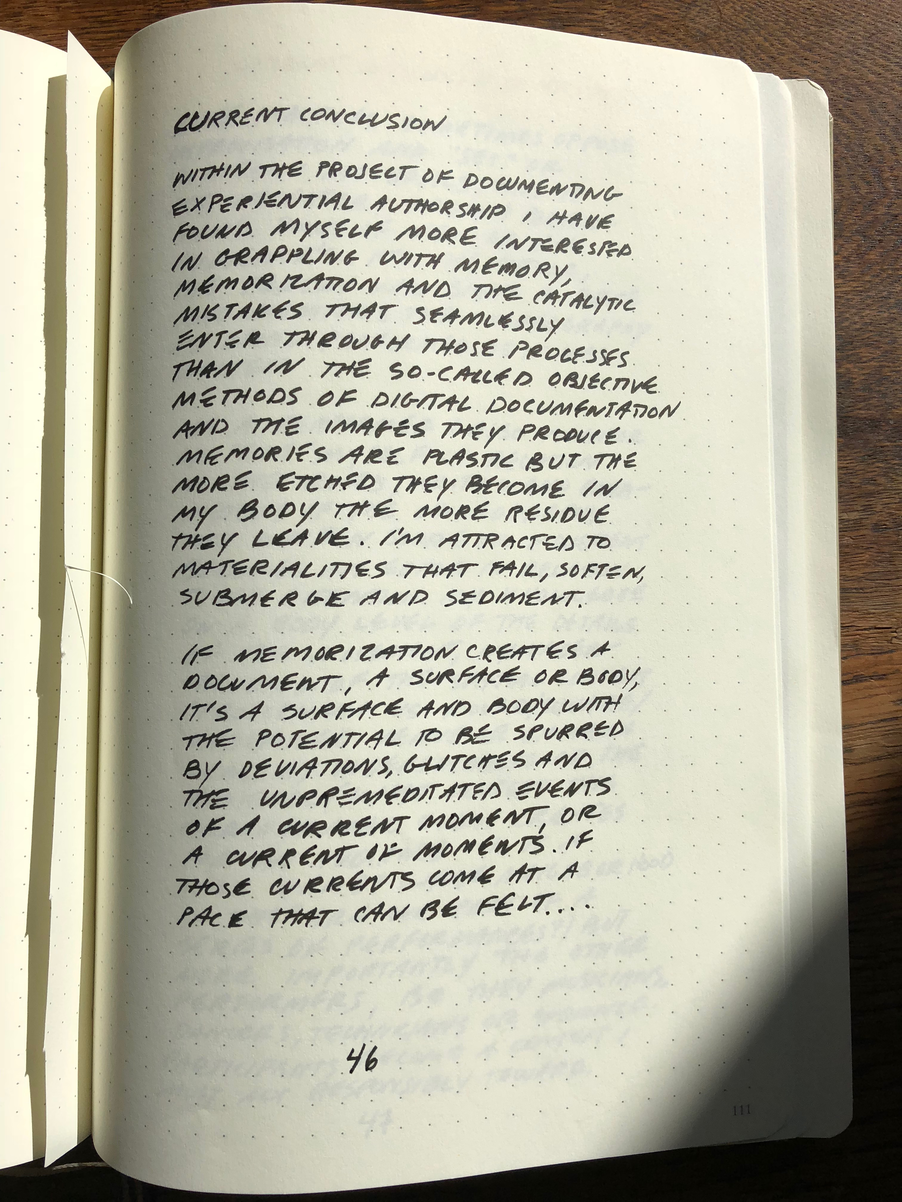 CURRENT CONCLUSION
WITHIN THE PROJECT OF DOCUMENTING
EXPERIENTIAL AUTHORSHIP I HAVE
FOUND MYSELF MORE INTERESTED
IN GRAPPLING WITH MEMORY,
MEMORIZATION AND THE CATALYTIC
MISTAKES THAT SEAMLESSLY
ENTER THROUGH THOSE PROCESSES
THAN IN THE SO-CALLED OBJECTIVE
METHODS OF DIGITAL DOCUMENTATION
AND THE IMAGES THEY PRODUCE.
MEMORIES ARE PLASTIC BUT THE
MORE ETCHED THEY BECOME IN
MY BODY THE MORE RESIDUE
THEY LEAVE. I'M ATTRACTED TO
MATERIALITIES THAT FAIL, SOFTEN,
SUBMERGE AND SEDIMENT.
IF MEMORIZATION CREATES A
DOCUMENT, A SURFACE OR BODY,
IT'S A SURFACE AND BODY WITH
THE POTENTIAL TO BE SPURRED
BY DEVIATIONS, GLITCHES AND
THE UNPREMEDITATED EVENTS
OF A CURRENT MOMENT, OR
A CURRENT OF MOMENTS. IF
THOSE CURRENTS COME AT A
PACE THAT CAN BE FELT....
46
111